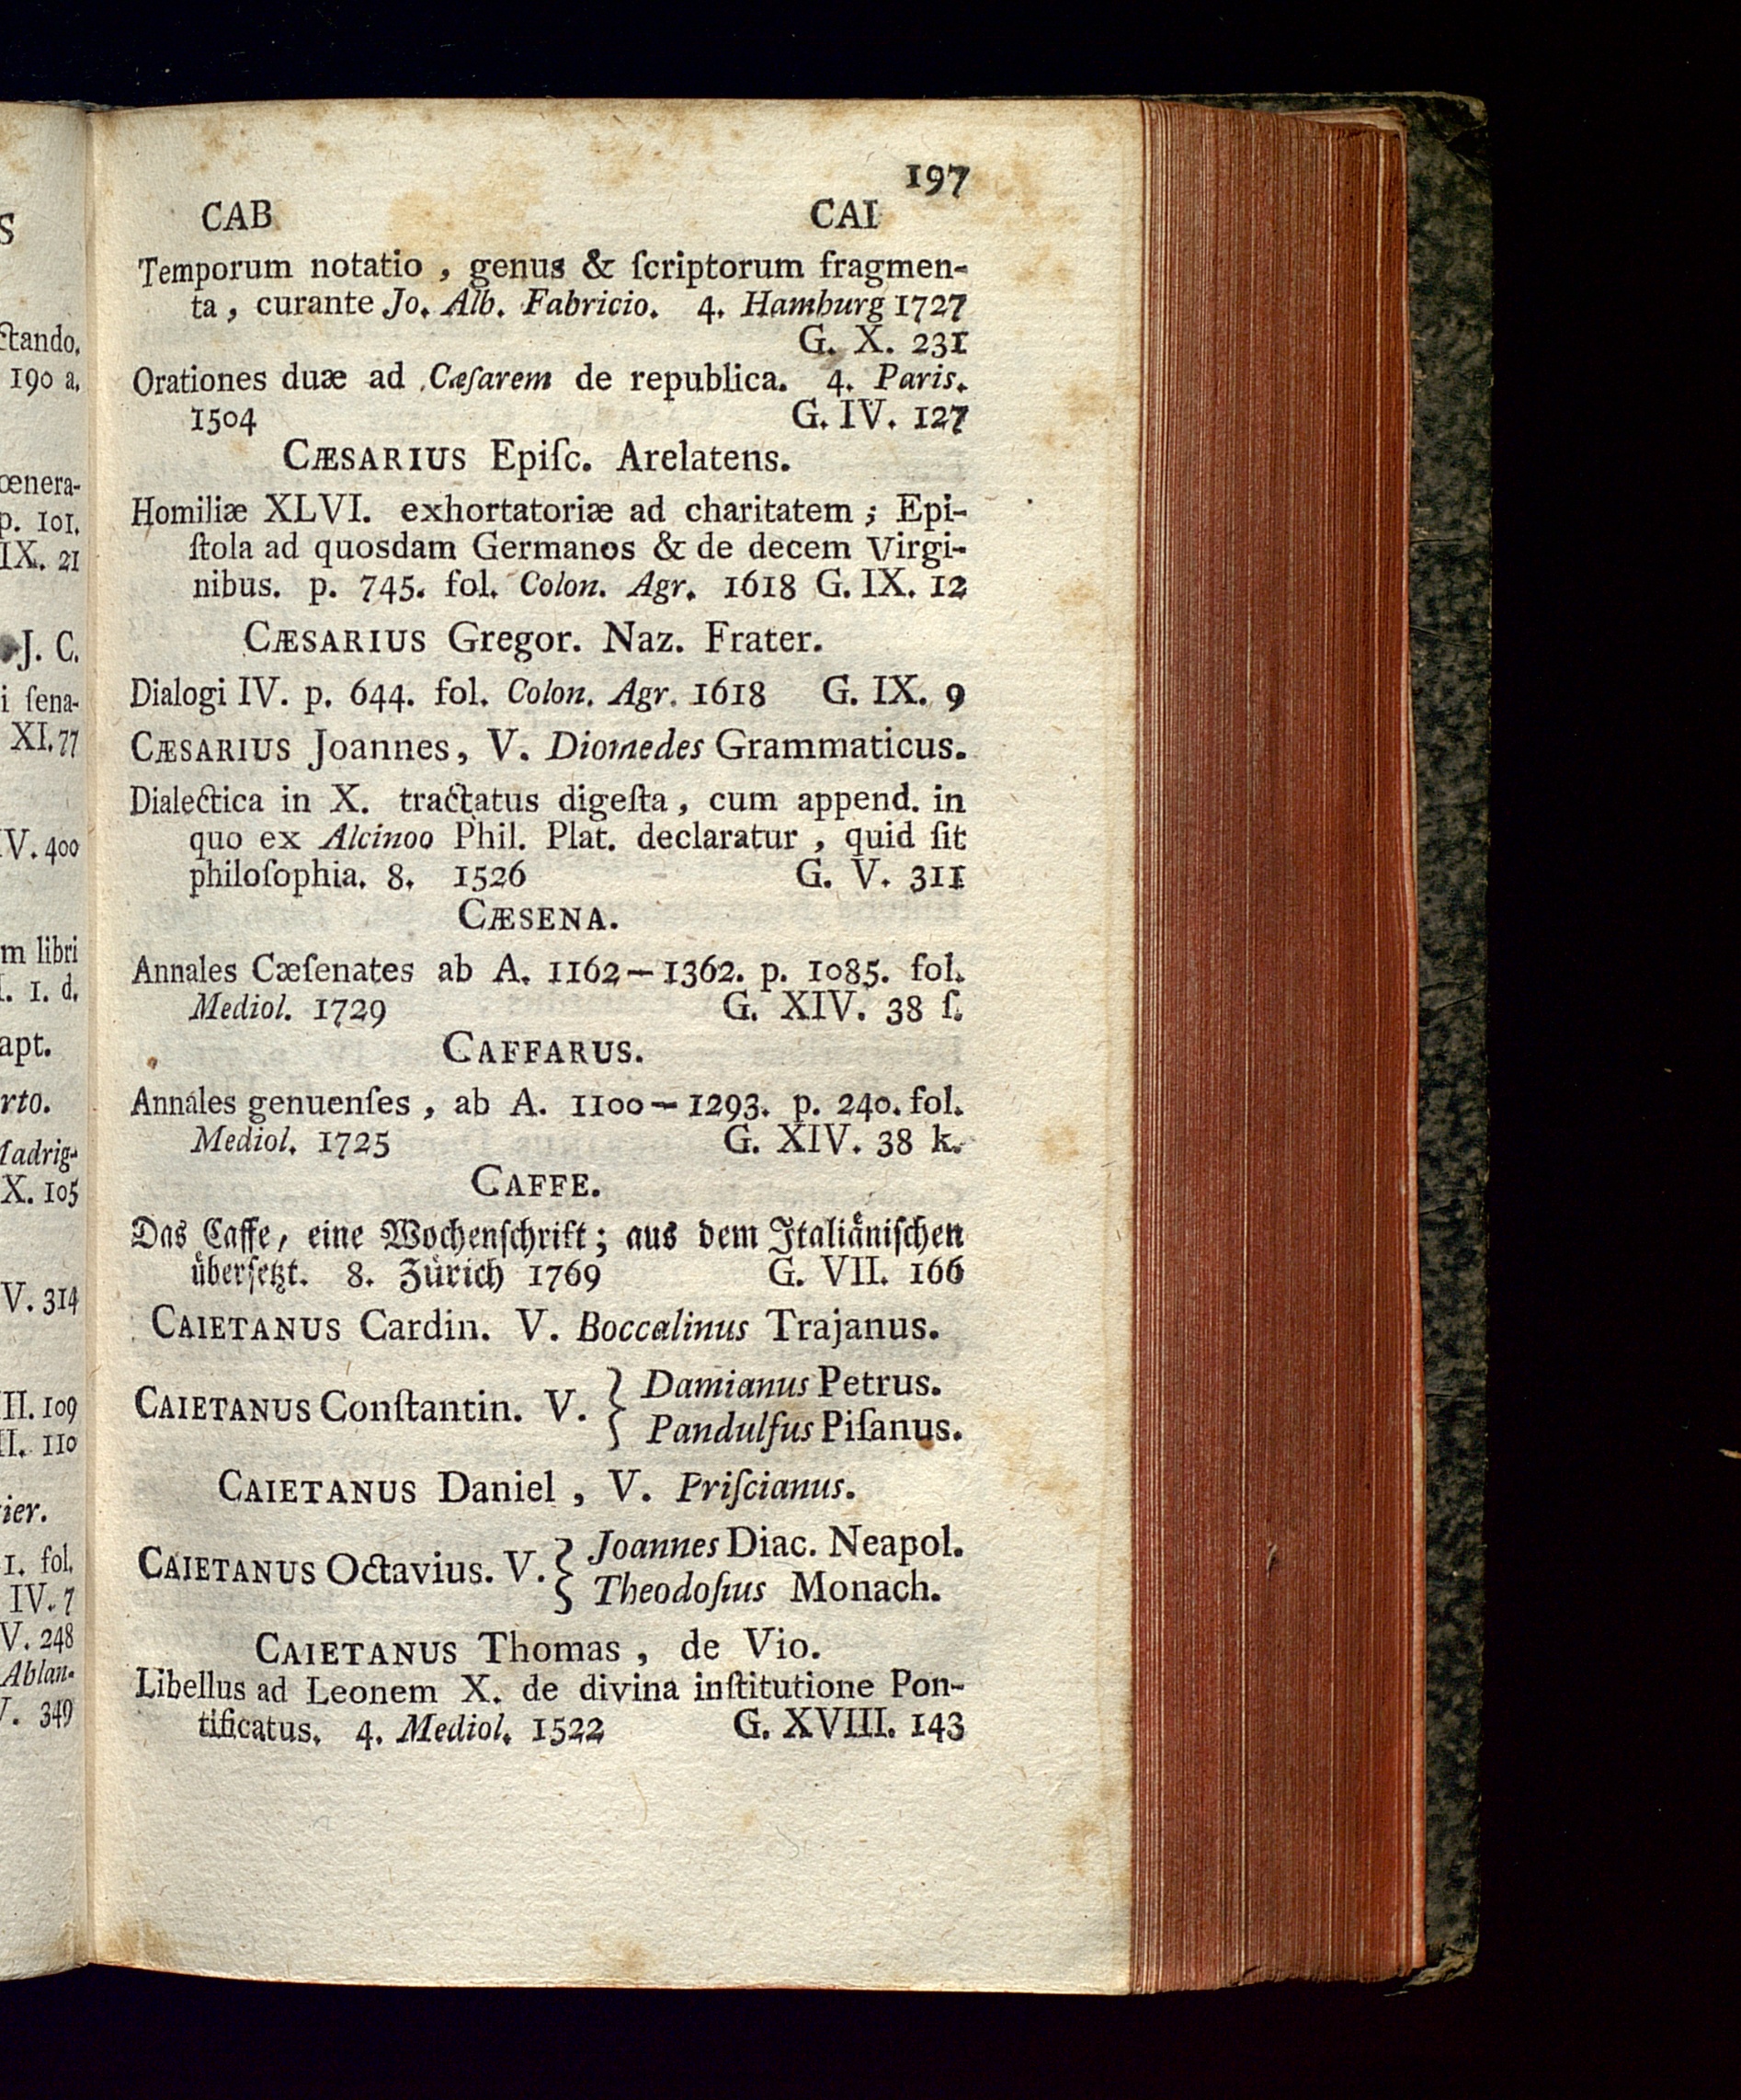 S
ctando.
190 a.
œnera-
p. 101.
IX. 21
J. C.
i ſena-
XI. 77
IV. 400
m libri
I. 1. d.
apt.
rto.
Madrig-
X. 105
V. 314
II. 109
II. 110
ier.
1. fol.
IV. 7
V. 248
Ablan-
V. 349
197
CAB CAI
Temporum notatio, genus & ſcriptorum fragmen-
ta, curante Jo. Alb. Fabricio. 4. Hamburg 1727
G. X. 231
Orationes duæ ad Cæſarem de republica. 4. Paris.
1504 G. IV. 127
CÆSARIUS Epiſc. Arelatens.
Homiliæ XLVI. exhortatoriæ ad charitatem; Epi-
ſtola ad quosdam Germanos & de decem Virgi-
nibus. p. 745. fol. Colon. Agr. 1618 G. IX. 12
CÆSARIUS Gregor. Naz. Frater.
Dialogi IV. p. 644. fol. Colon. Agr. 1618 G. IX. 9
CÆSARIUS Joannes, V. Diomedes Grammaticus.
Dialectica in X. tractatus digeſta, cum append. in
quo ex Alcinoo Phil. Plat. declaratur, quid ſit
philoſophia. 8. 1526 G. V. 311
CÆSENA.
Annales Cæſenates ab A. 1162–1362. p. 1085. fol.
Mediol. 1729 G. XIV. 38 ſ.
CAFFARUS.
Annales genuenſes, ab A. 1100–1293. p. 240. fol.
Mediol. 1725 G. XIV. 38 k.
CAFFE.
Das Caffe, eine Wochenſchrift; aus dem Italiäniſchen
überſetzt. 8. Zürich 1769 G. VII. 166
CAIETANUS Cardin. V. Boccalinus Trajanus.
CAIETANUS Conſtantin. V. } Damianus Petrus.
Pandulfus Piſanus.
CAIETANUS Daniel, V. Priſcianus.
CAIETANUS Octavius. V. } Joannes Diac. Neapol.
Theodoſius Monach.
CAIETANUS Thomas, de Vio.
Libellus ad Leonem X. de divina inſtitutione Pon-
tificatus. 4. Mediol. 1522 G. XVIII. 143